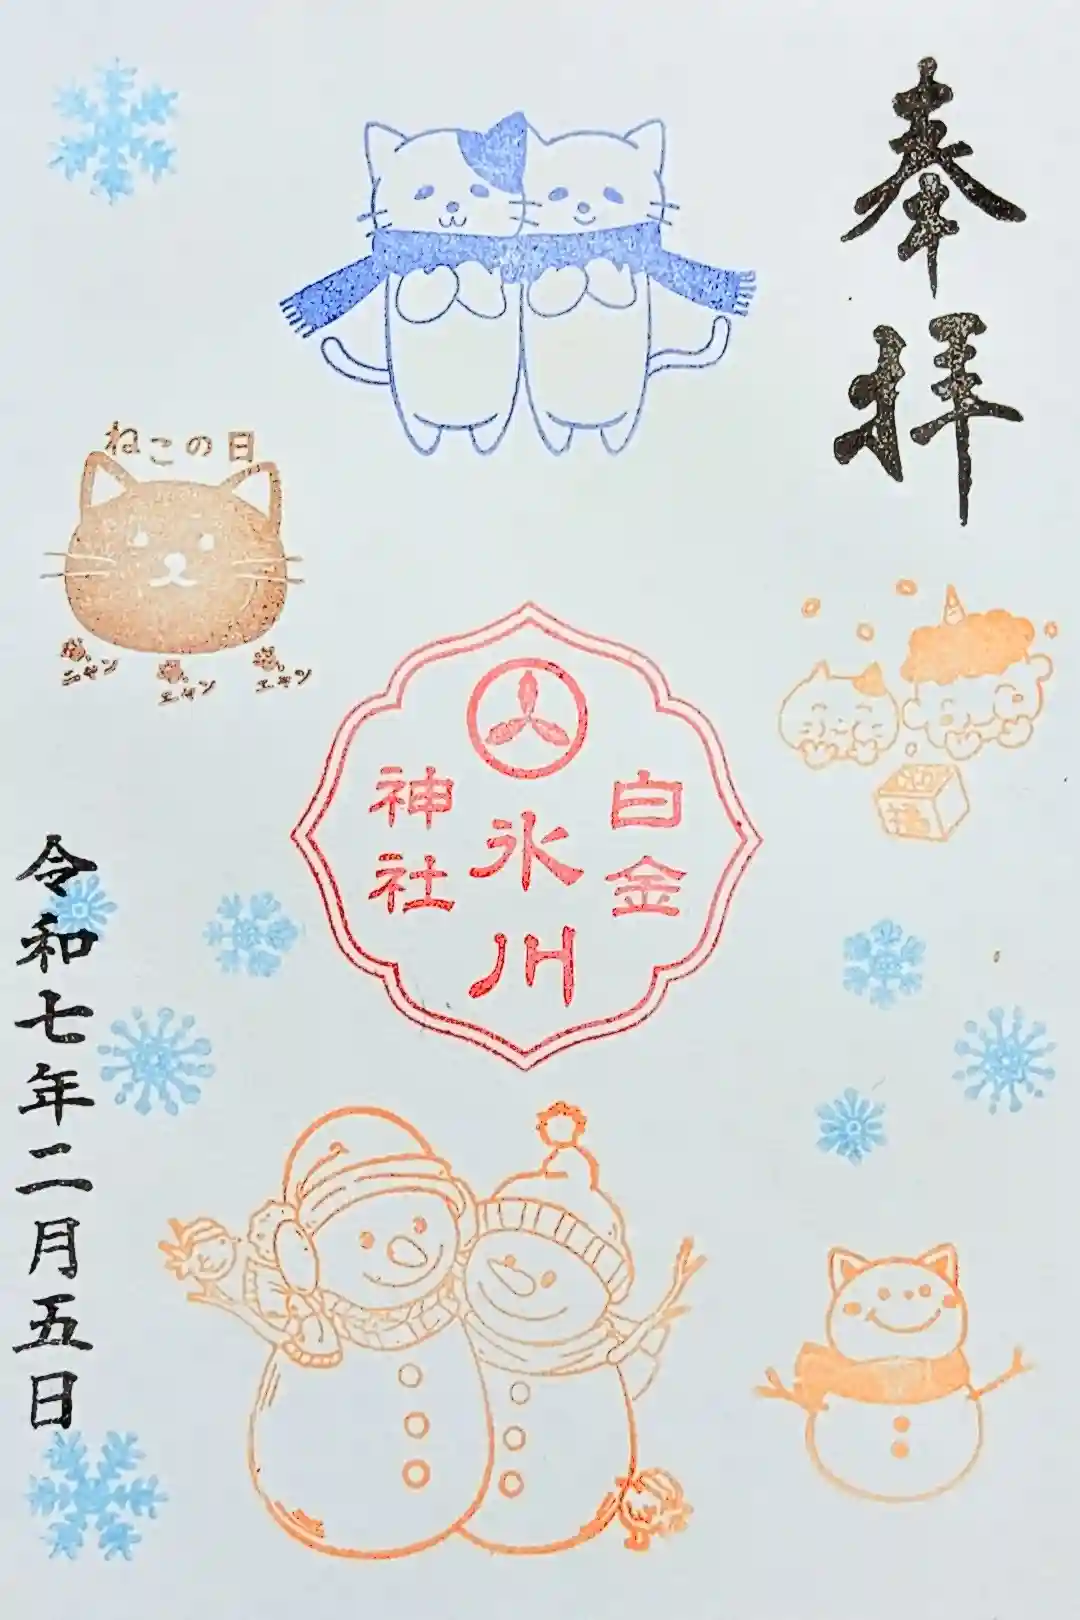 奉拝
白金
氷川
神社
令和七年二月五日
ねこの日
ニャン
ニャン
ニャン